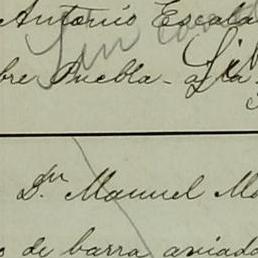 Antonio Escala
Sin
bre Puebla - a la
Dn Manuel Ma
o de barra aviada